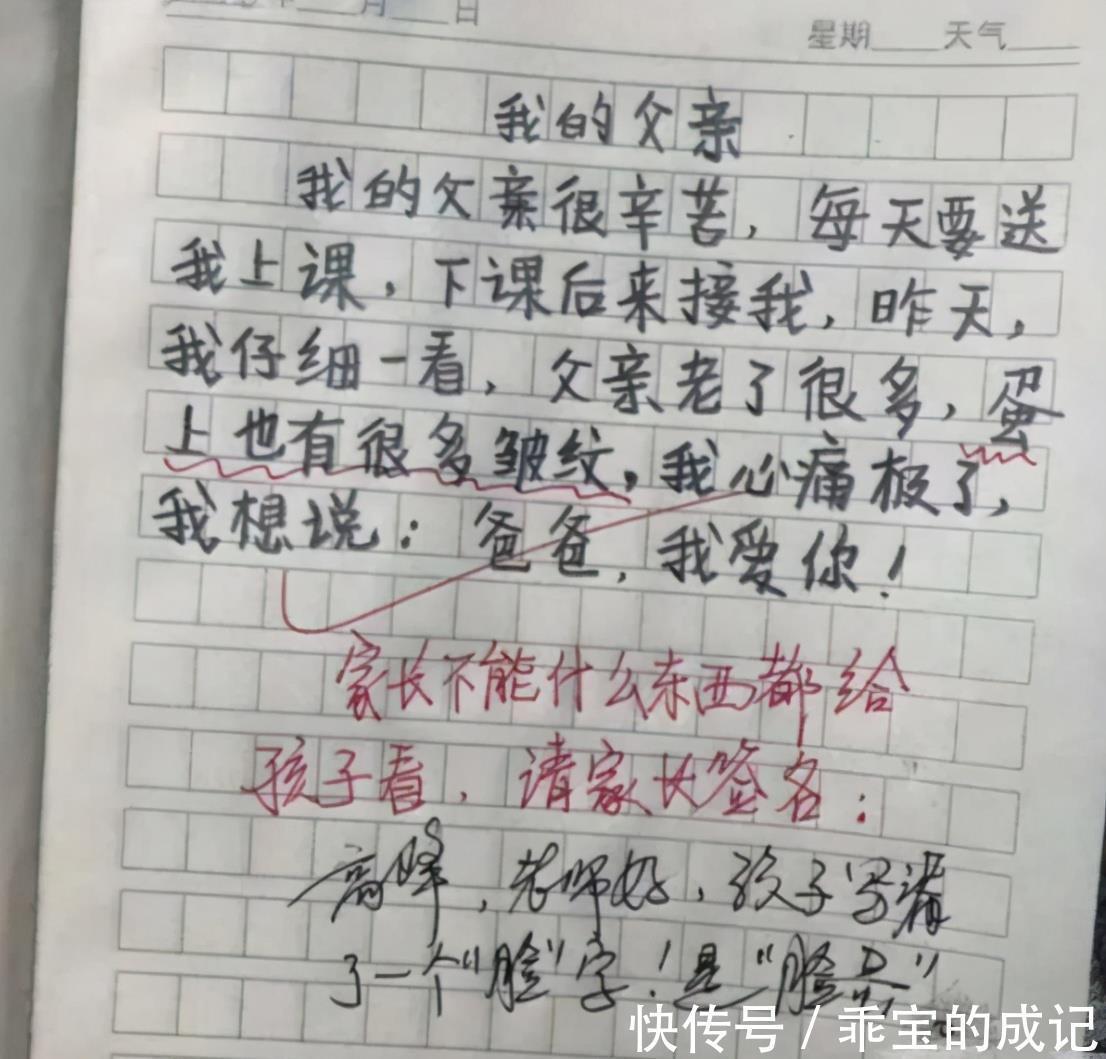 月 日
星期 天气
我的父亲
我的父亲很辛苦，每天要送
我上课，下课后来接我，昨天，
我仔细一看，父亲老了很多，蛋
上也有很多皱纹，我心痛极了，
我想说：爸爸，我爱你！
家长不能什么东西都给
孩子看，请家长签名：
高峰，老师好，孩子写漏
了一个“脸”字！是“脸蛋”
快传号 / 乖宝的成记